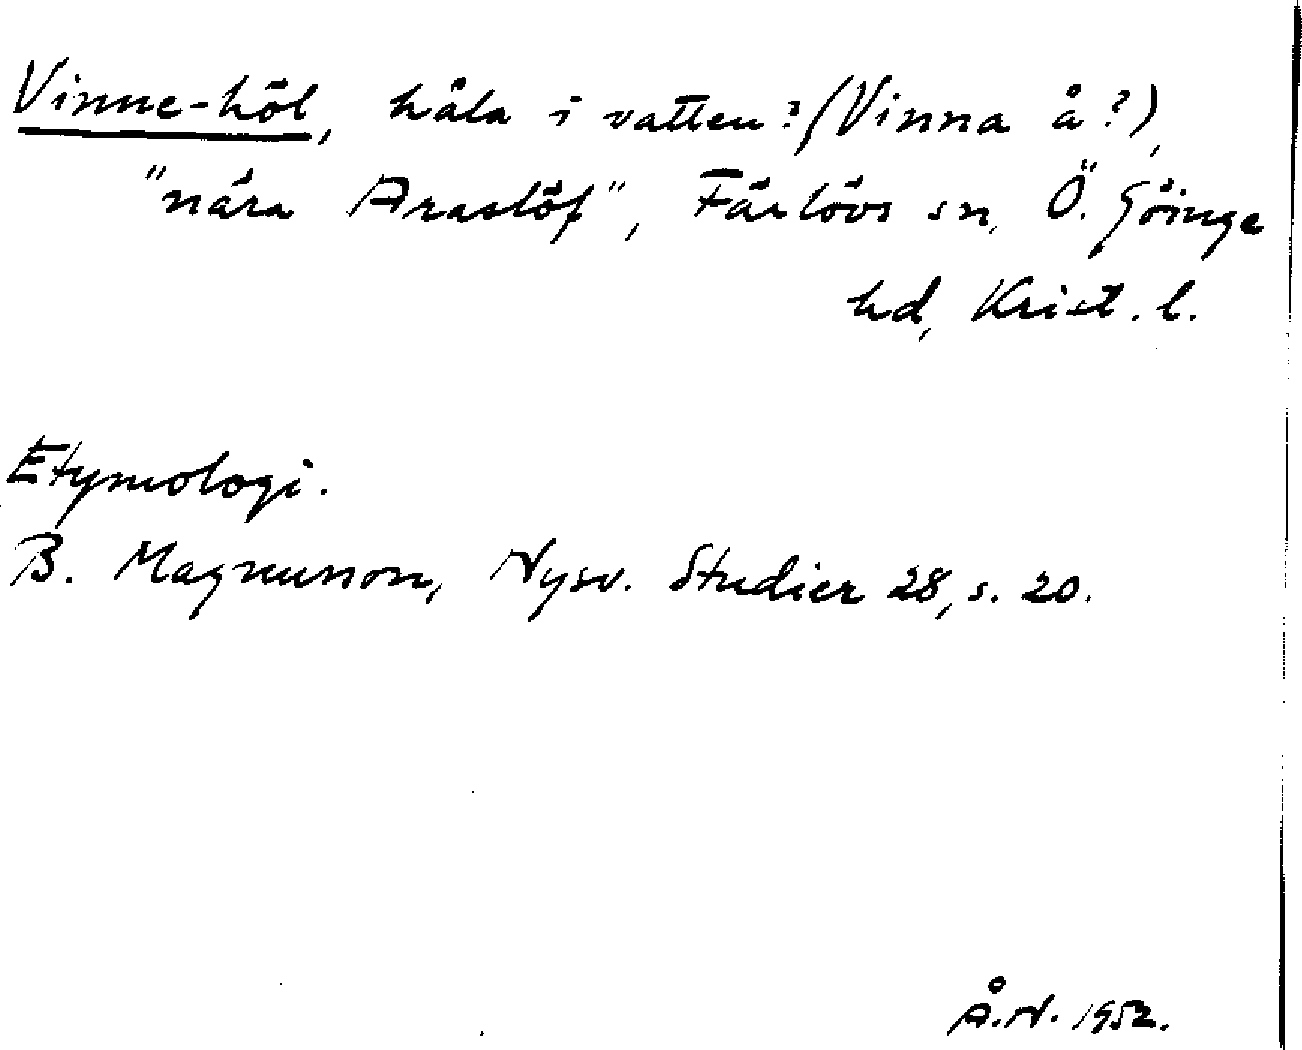 Vinne-höl, håla i vatten? (Vinna å?),
"nära Araslöf", Färlövs sn, Ö. Göinge
hd, Krist. l.
Etymologi.
B. Magnusson, Nysv. Studier 28, s. 20.
Å.N. 1952.